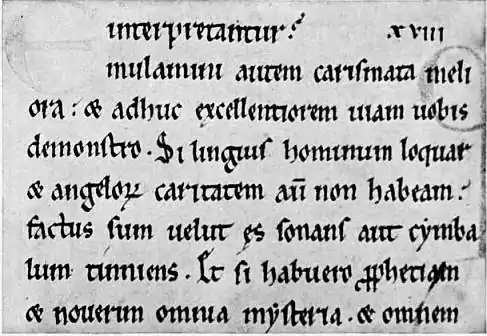 interpretantur? xviii
Emulamini autem carismata meli
ora: & adhuc excellentiorem uiam uobis
demonstro. Si linguis hominum loquar
& angeloꝝ caritatem aū non habeam:
factus sum uelut ęs sonans aut cymba
lum tinniens. Et si habuero ꝓphetiam
& nouerim omnia mysteria. & omnem